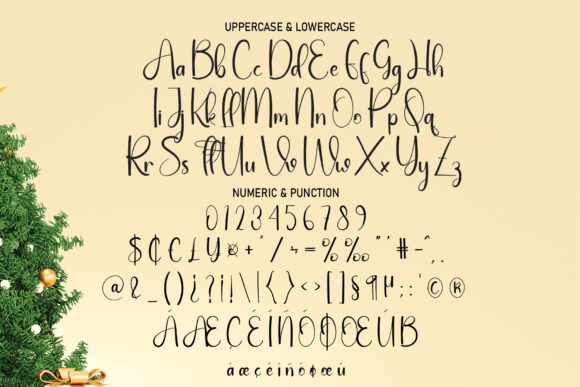 UPPERCASE & LOWERCASE
Aa Bb Cc Dd Ee Ff Gg Hh
Ii Jj Kk Ll Mm Nn Oo Pp Qq
Rr Ss Tt Uu Vv Ww Xx Yy Zz
NUMERIC & PUNCTION
0123456789
$ ₵ € £ ¥ ¤ + * / ÷ = % ‰ " ' # - ^ , .
@ & _ ( ) ¿ ? ¡ ! \ | { } < > [ ] § ¶ µ ; : ' © ®
ÁÆÇÉÍÑÓØŒÚB
áæçéíñóøœú